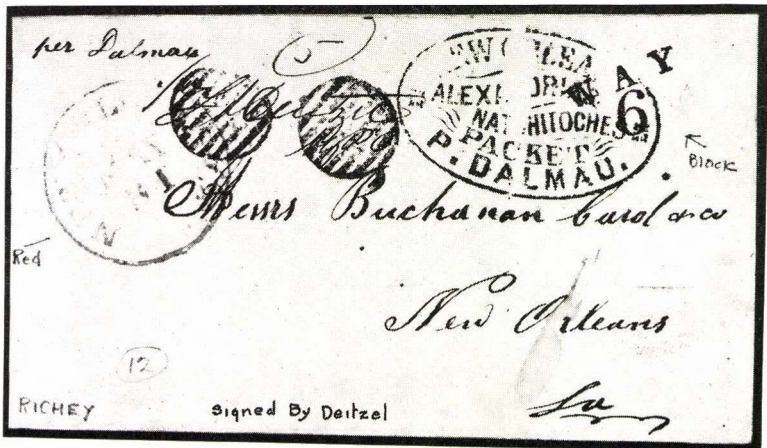 per Dalmau
5
NEW ORLEA
ALEXANDRIA
NATCHITOCHES
PACKET
P. DALMAU.
WAY
6
Black
Messrs Buchanan Carol & co
Red
New Orleans
12
La
RICHEY
Signed By Deitzel